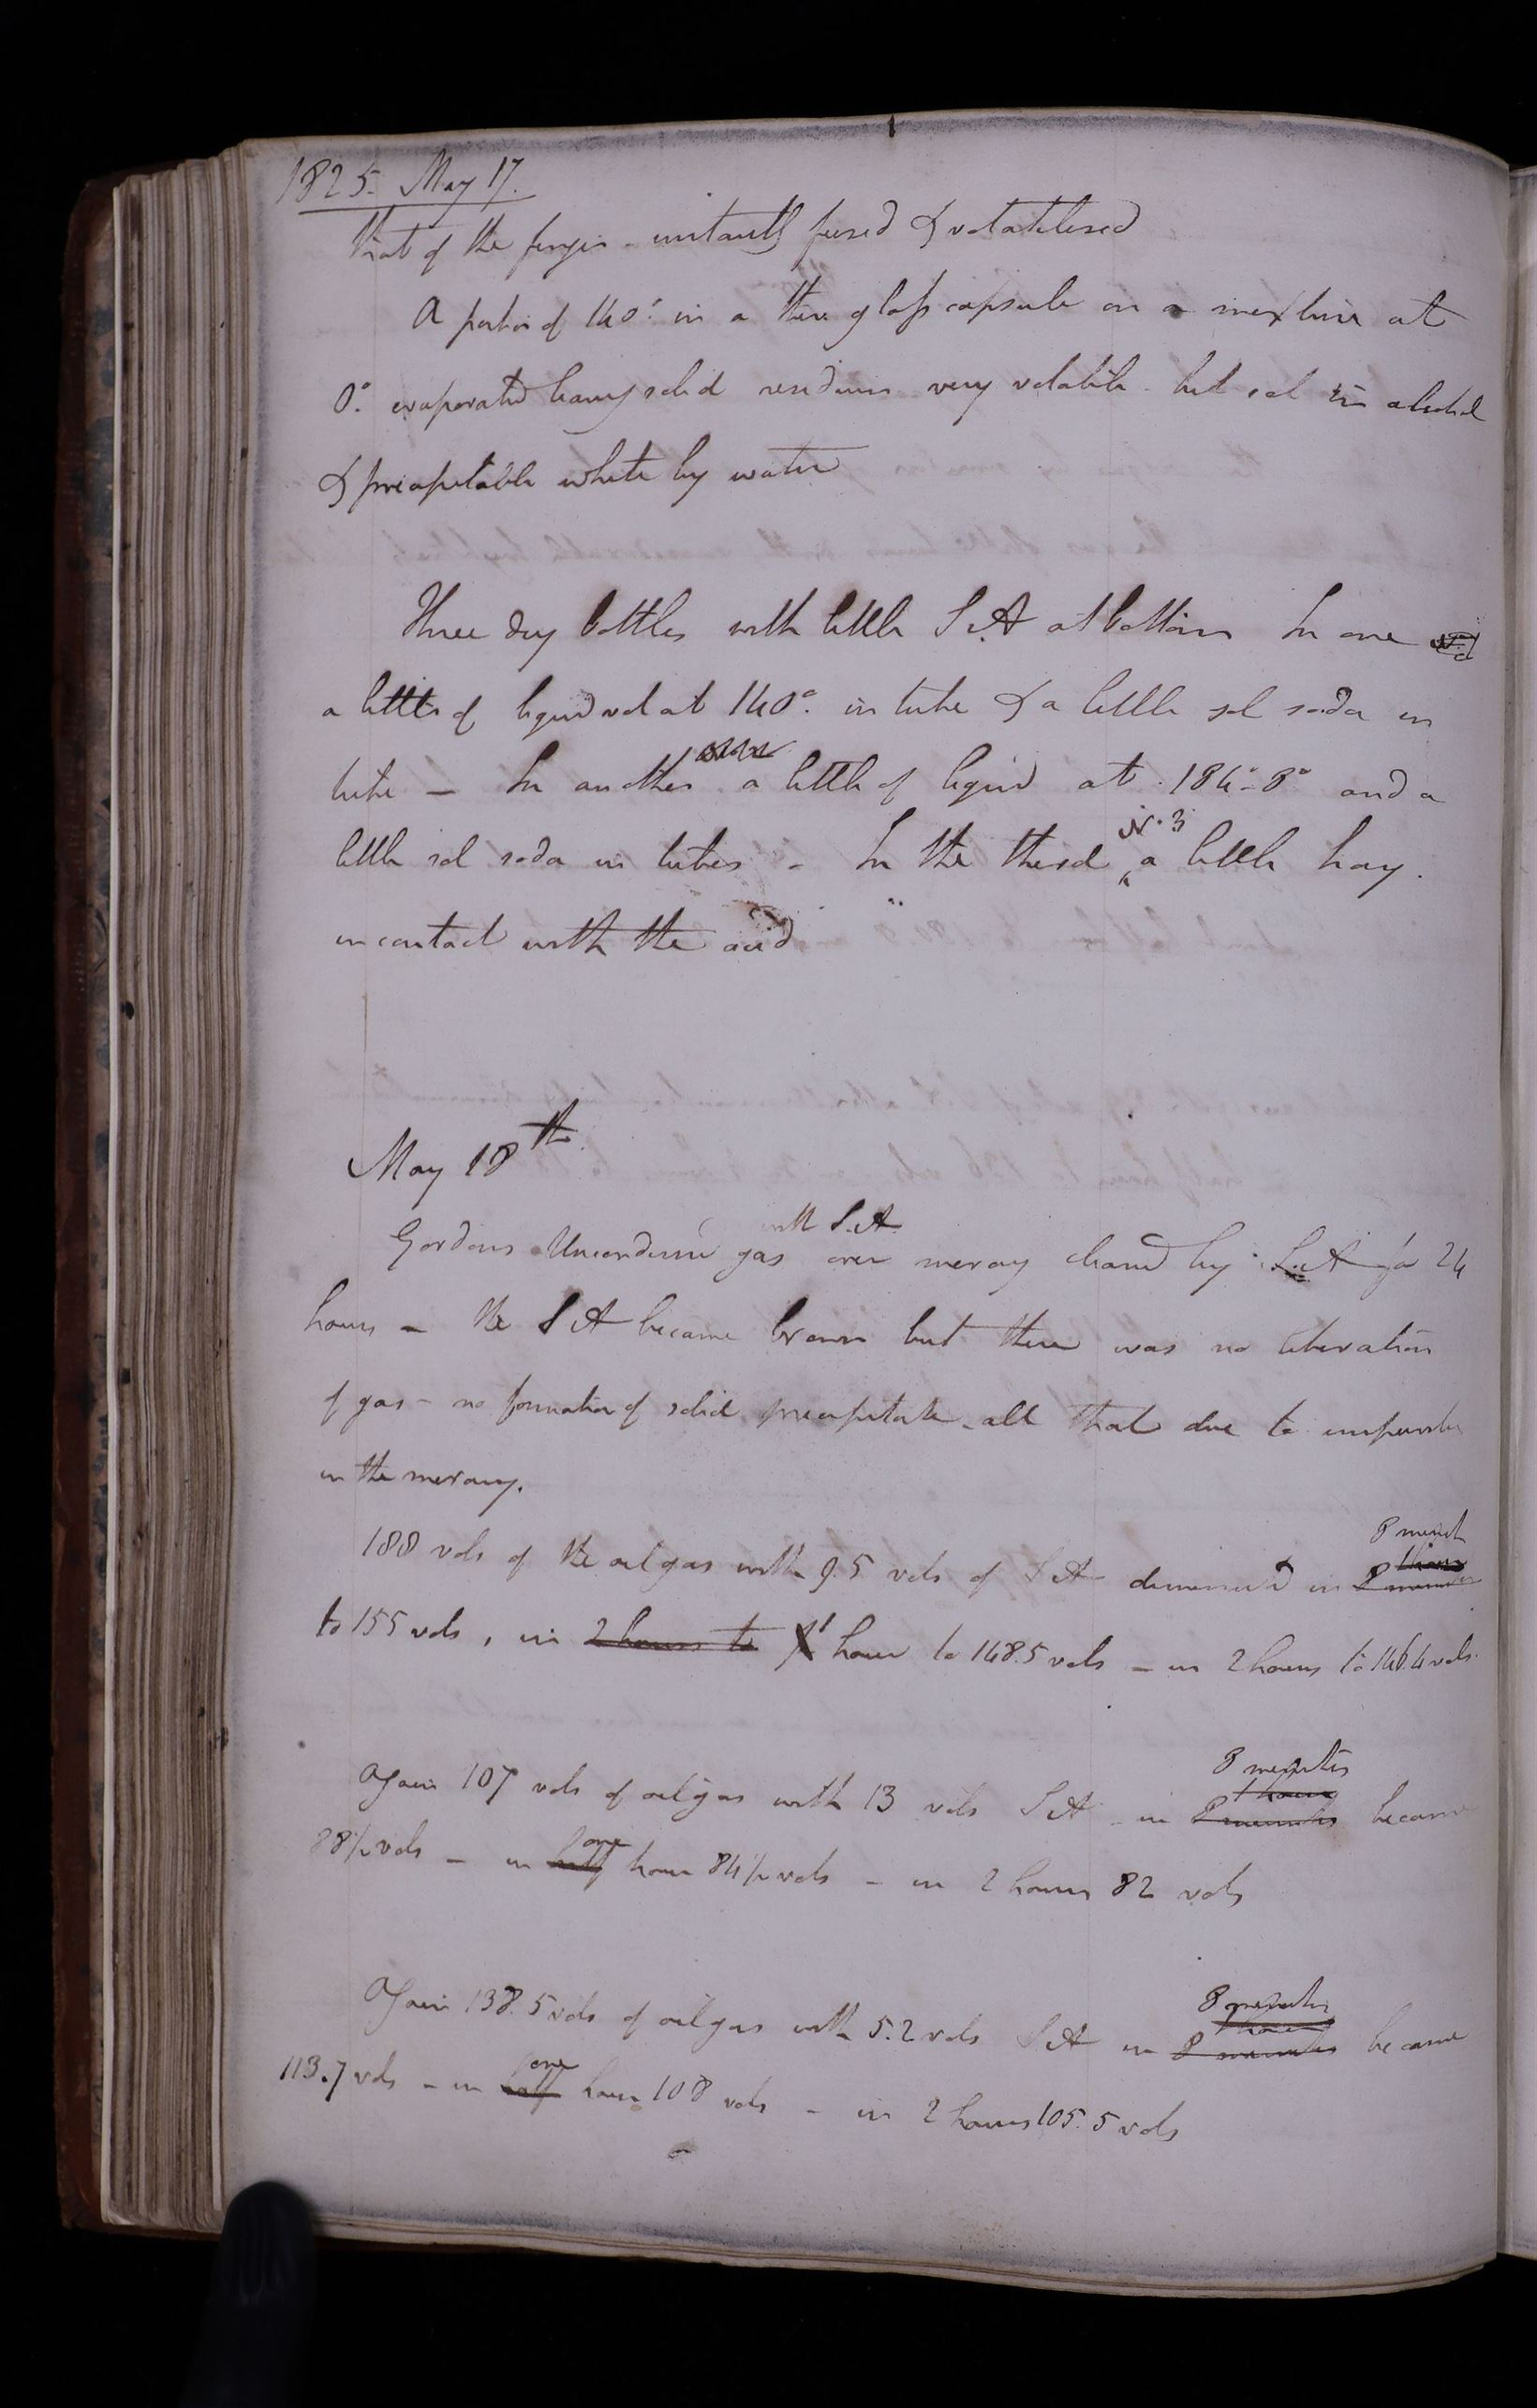 1825. May 17.
that of the finger - instantly fused & volatilised
A portion of 140° in a thin glass capsule on a mixture at
0° evaporated leaving solid residuum very volatile - but sol in alcohol
& precipitable white by water
Three dry bottles with little S.A at bottom In one
a little of liquid vol at 140° in tube & a little sol soda in
tube - In another a little of liquid at 186°.8° and a
little sol soda in tubes - In the third N. 3 a little hay
in contact with the acid
May 18th
with S.A.
Gordons Uncondensed gas over mercury by S.A for 24
hours - the S A became brown but there was no liberation
of gas - no formation of solid precipitate - all that due to impurity
in the mercury.
8 minut
1 hour
188 vols of the oil gas with 9.5 vols of S A diminished in 8 minutes
to 155 vols, in 2 hours to 1 hour to 148.5 vols - in 2 hours to 146.4 vols.
8 minutes
1 hour
Again 107 vols of oil gas with 13 vols S A - in 8 minutes became
one
88½ vols - in half hour 84½ vols - in 2 hours 82 vols
8 minutes
1 hour
Again 138.5 vols of oil gas with 5.2 vols S A in 8 minutes became
one
113.7 vols - in half hour 108 vols - in 2 hours 105.5 vols